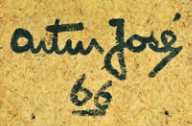 Artur José
66